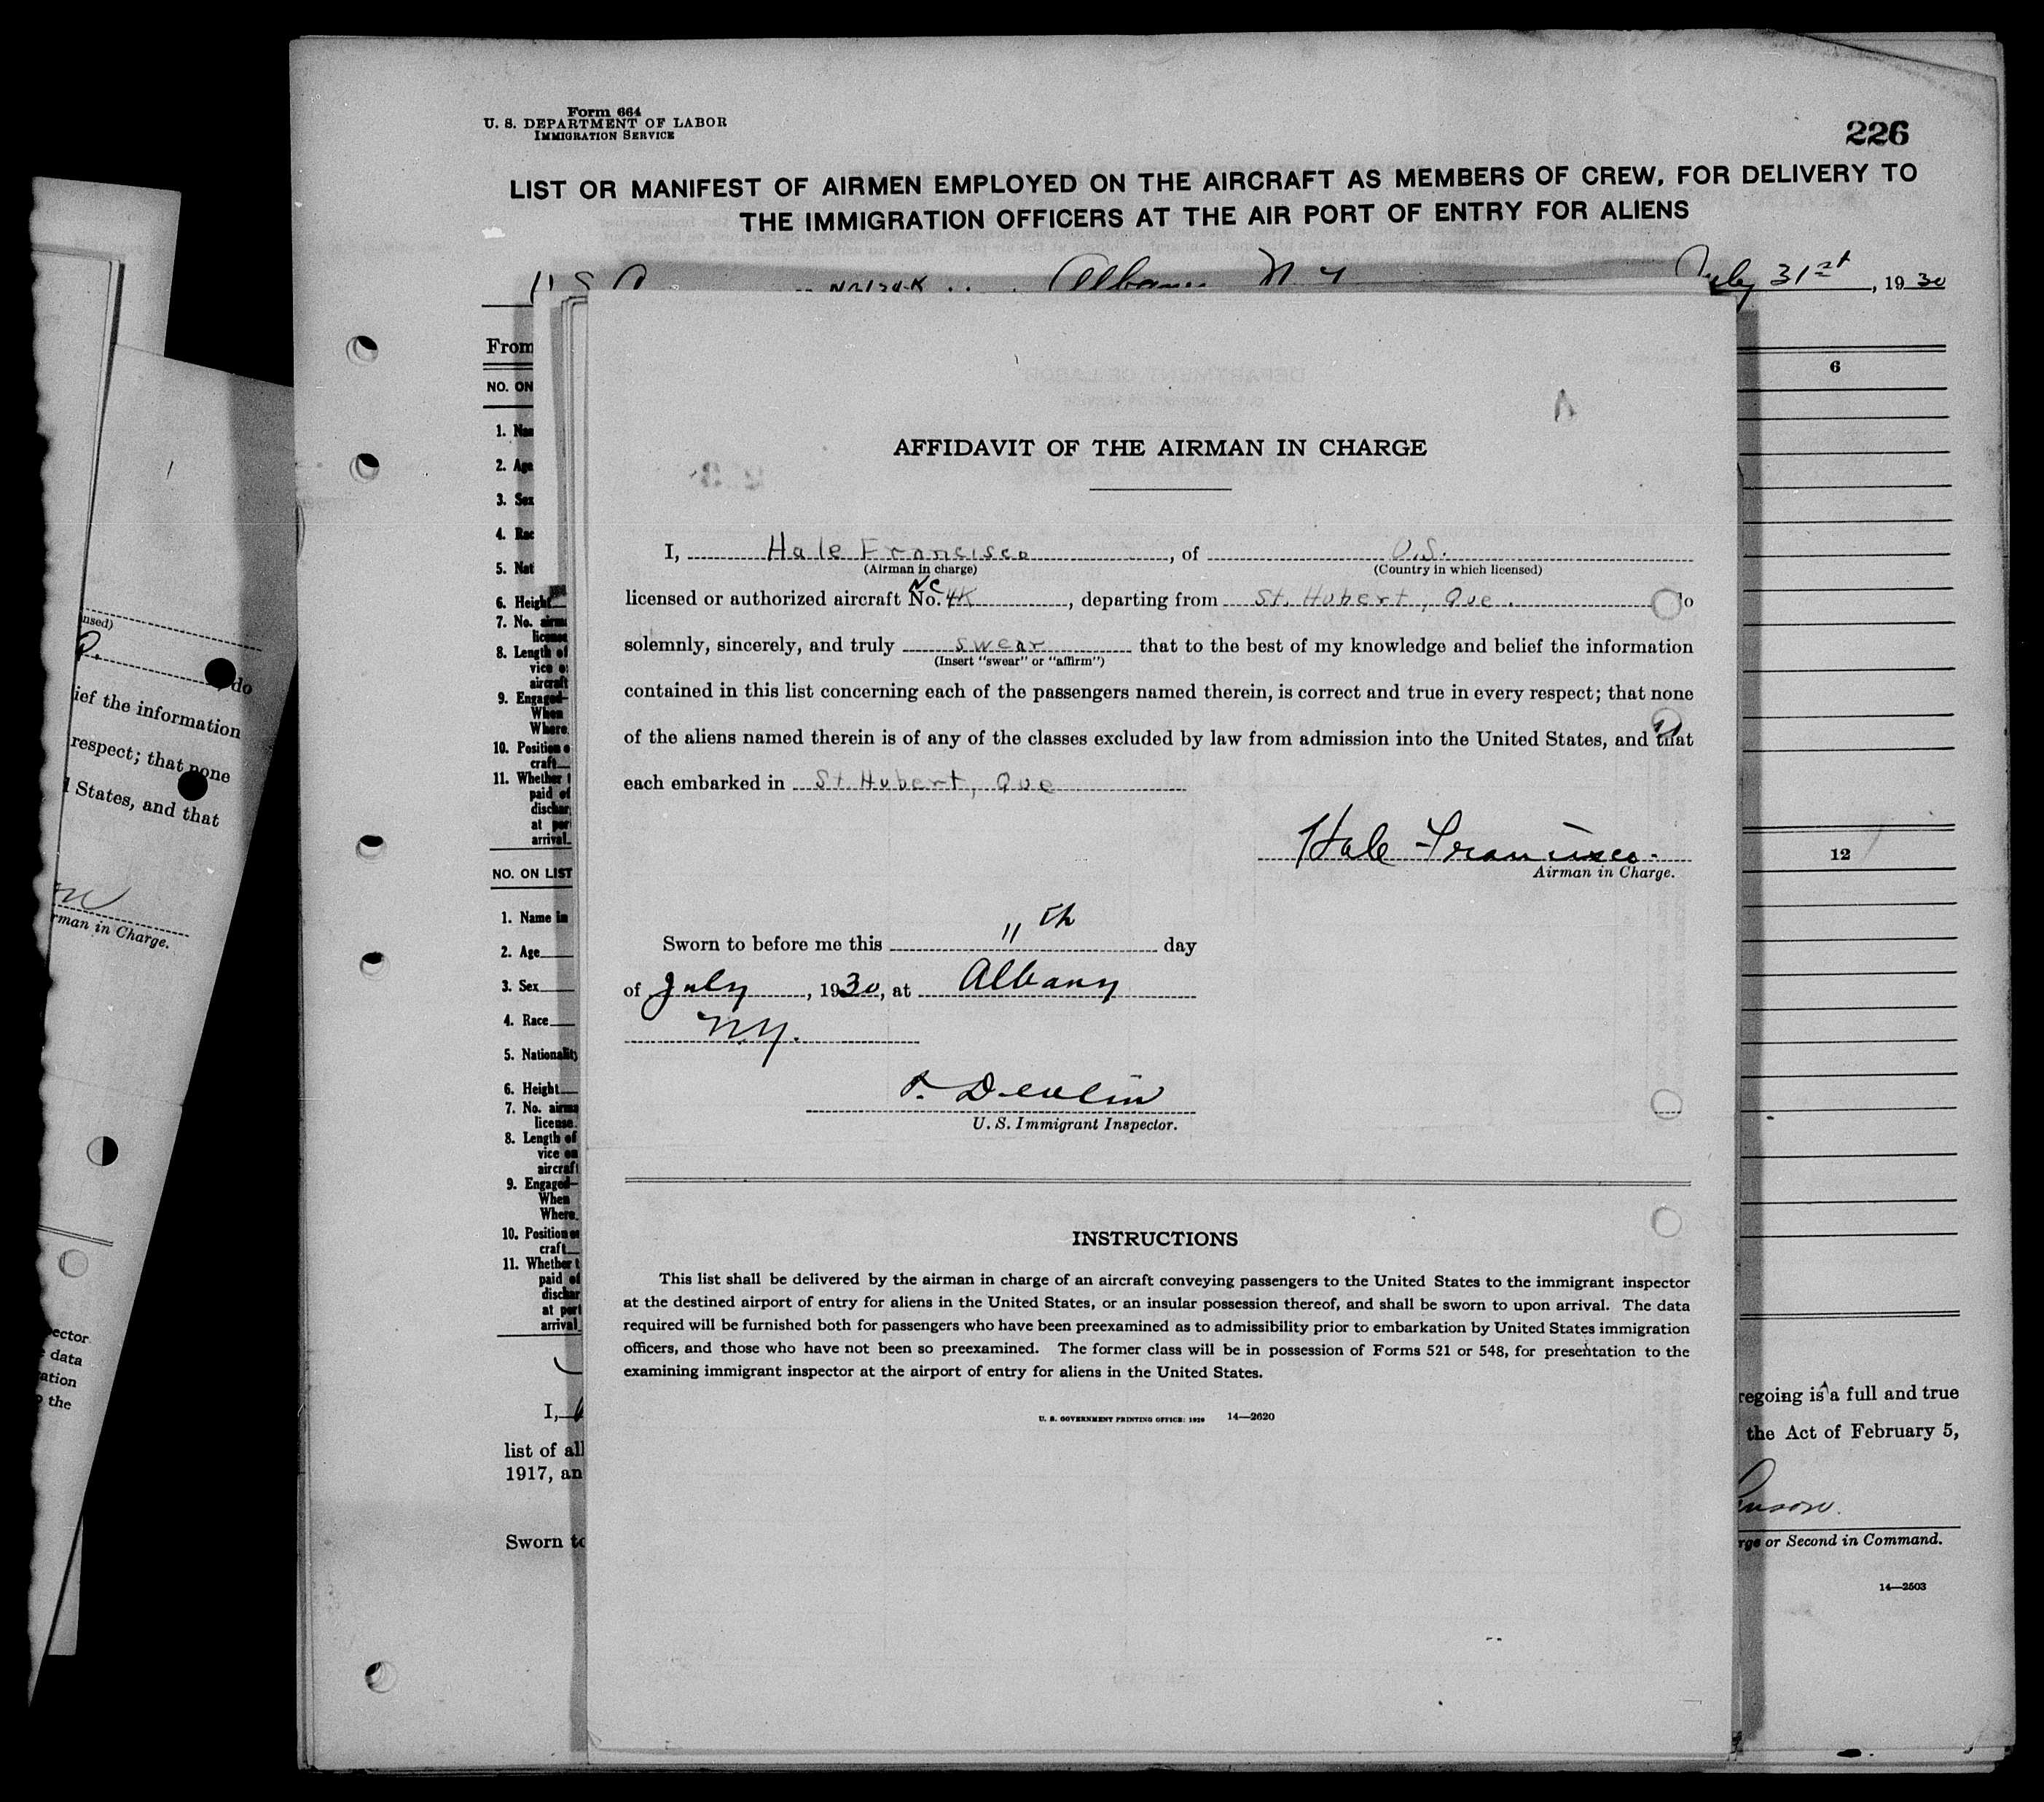 Form 664
U. S. DEPARTMENT OF LABOR
IMMIGRATION SERVICE
226
LIST OR MANIFEST OF AIRMEN EMPLOYED ON THE AIRCRAFT AS MEMBERS OF CREW, FOR DELIVERY TO
THE IMMIGRATION OFFICERS AT THE AIR PORT OF ENTRY FOR ALIENS
Albany N. Y. July 31st, 1930
From
NO. ON
6
1. Nam
2. Age
3. Sex
4. Rac
5. Nat
6. Height
7. No. airma
license
8. Length of
vice o
aircraft
9. Engaged—
When
Where
10. Position o
craft
11. Whether t
paid of
dischar
at por
arrival
NO. ON LIST
12
1. Name in
2. Age
3. Sex
4. Race
5. Nationality
6. Height
7. No. airma
license
8. Length of
vice on
aircraft
9. Engaged—
When
Where
10. Position on
craft
11. Whether t
paid of
dischar
at port
arrival
I,
list of all
1917, an
Sworn to
AFFIDAVIT OF THE AIRMAN IN CHARGE
I, Hale Francisco, of U.S.
(Airman in charge) (Country in which licensed)
licensed or authorized aircraft No. NC 4K, departing from St. Hubert, Que. do
solemnly, sincerely, and truly swear that to the best of my knowledge and belief the information
(Insert "swear" or "affirm")
contained in this list concerning each of the passengers named therein, is correct and true in every respect; that none
of the aliens named therein is of any of the classes excluded by law from admission into the United States, and that
each embarked in St. Hubert, Que
Hale Francisco.
Airman in Charge.
Sworn to before me this 11th day
of July, 1930, at Albany
N.Y.
P. Devlin
U. S. Immigrant Inspector.
INSTRUCTIONS
This list shall be delivered by the airman in charge of an aircraft conveying passengers to the United States to the immigrant inspector
at the destined airport of entry for aliens in the United States, or an insular possession thereof, and shall be sworn to upon arrival. The data
required will be furnished both for passengers who have been preexamined as to admissibility prior to embarkation by United States immigration
officers, and those who have not been so preexamined. The former class will be in possession of Forms 521 or 548, for presentation to the
examining immigrant inspector at the airport of entry for aliens in the United States.
U. S. GOVERNMENT PRINTING OFFICE: 1929 14—2620
regoing is a full and true
the Act of February 5,
rge or Second in Command.
14—2503
nsed)
do
ief the information
respect; that none
d States, and that
rman in Charge.
ector
data
ation
the